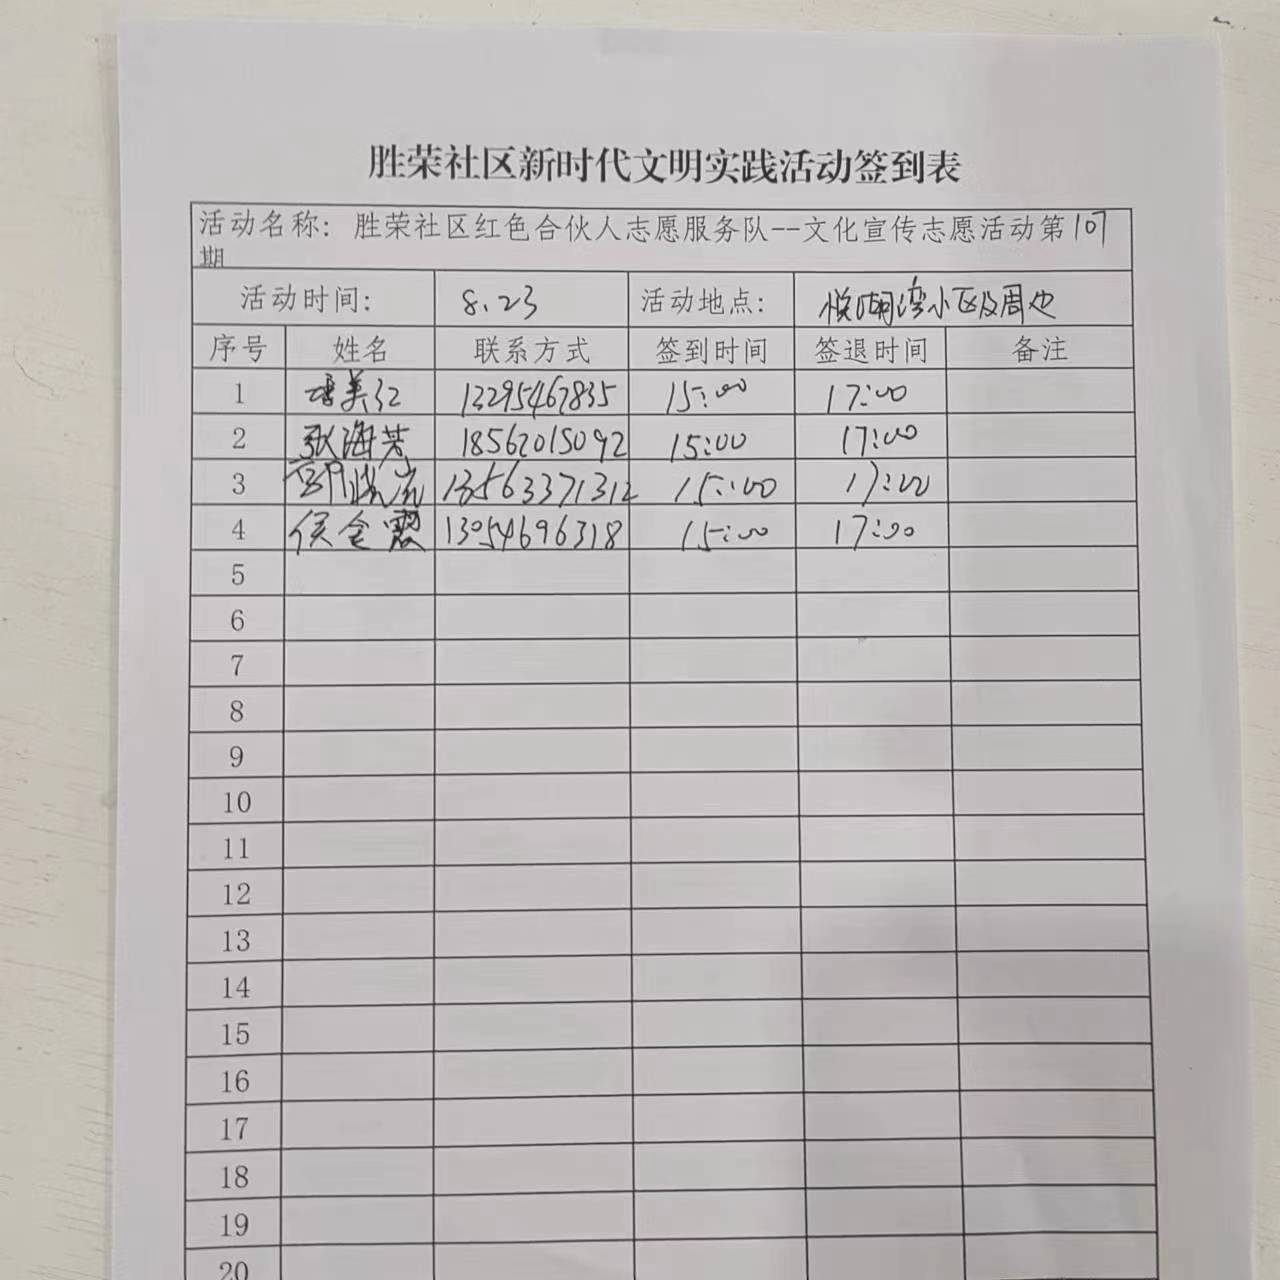 胜荣社区新时代文明实践活动签到表
活动名称：胜荣社区红色合伙人志愿服务队--文化宣传志愿活动第107
期
活动时间： 8.23 活动地点： 悦湖湾小区及周边
序号 姓名 联系方式 签到时间 签退时间 备注
1 美红 13295467835 15:00 17:00
2 张海芳 18562015092 15:00 17:00
3 13563371312 15:00 17:00
4 侯金霞 13054696318 15:00 17:00
5
6
7
8
9
10
11
12
13
14
15
16
17
18
19
20